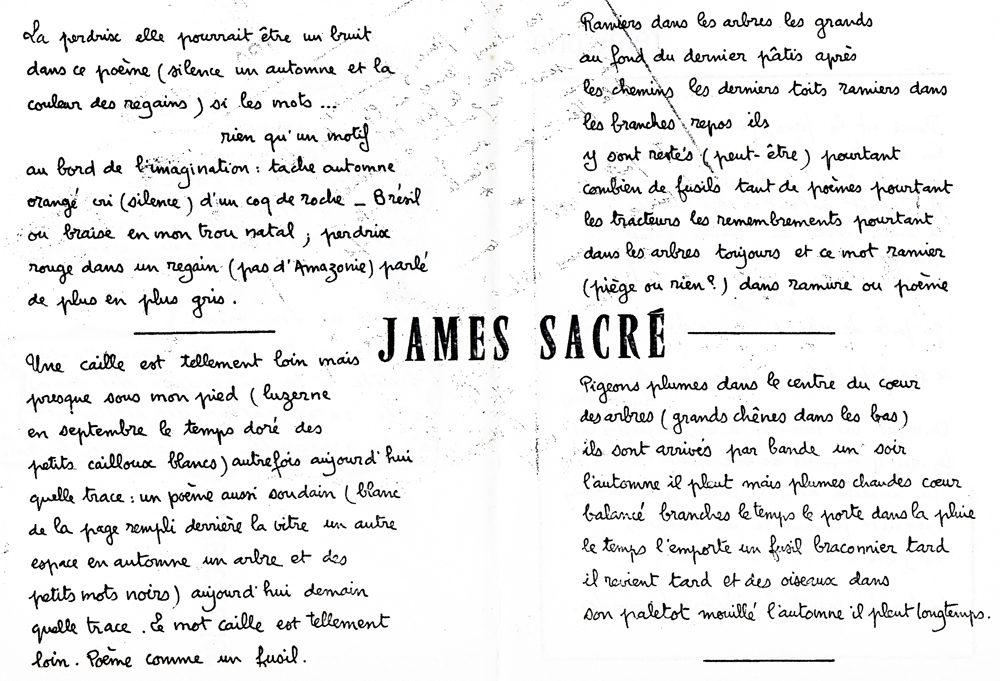 La perdrix elle pourrait être un bruit
dans ce poème (silence un automne et la
couleur des regains) si les mots ...
rien qu'un motif
au bord de l'imagination : tache automne
orangé cri (silence) d'un coq de roche _ Brésil
ou braise en mon trou natal ; perdrix
rouge dans un regain (pas d'Amazonie) parlé
de plus en plus gris.
Une caille est tellement loin mais
presque sous mon pied (luzerne
en septembre le temps doré des
petits cailloux blancs) autrefois aujourd'hui
quelle trace : un poème aussi soudain (blanc
de la page rempli derrière la vitre un autre
espace en automne un arbre et des
petits mots noirs) aujourd'hui demain
quelle trace. Le mot caille est tellement
loin. Poème comme un fusil.
JAMES SACRÉ
Ramiers dans les arbres les grands
au fond du dernier pâtis après
les chemins les derniers toits ramiers dans
les branches repos ils
y sont restés (peut-être) pourtant
combien de fusils tant de poèmes pourtant
les tracteurs les remembrements pourtant
dans les arbres toujours et ce mot ramier
(piège ou rien ?) dans ramure ou poème
Pigeons plumes dans le centre du cœur
des arbres (grands chênes dans les bas)
ils sont arrivés par bande un soir
l'automne il pleut mais plumes chaudes cœur
balancé branches le temps le porte dans la pluie
le temps l'emporte un fusil braconnier tard
il revient tard et des oiseaux dans
son paletot mouillé l'automne il pleut longtemps.